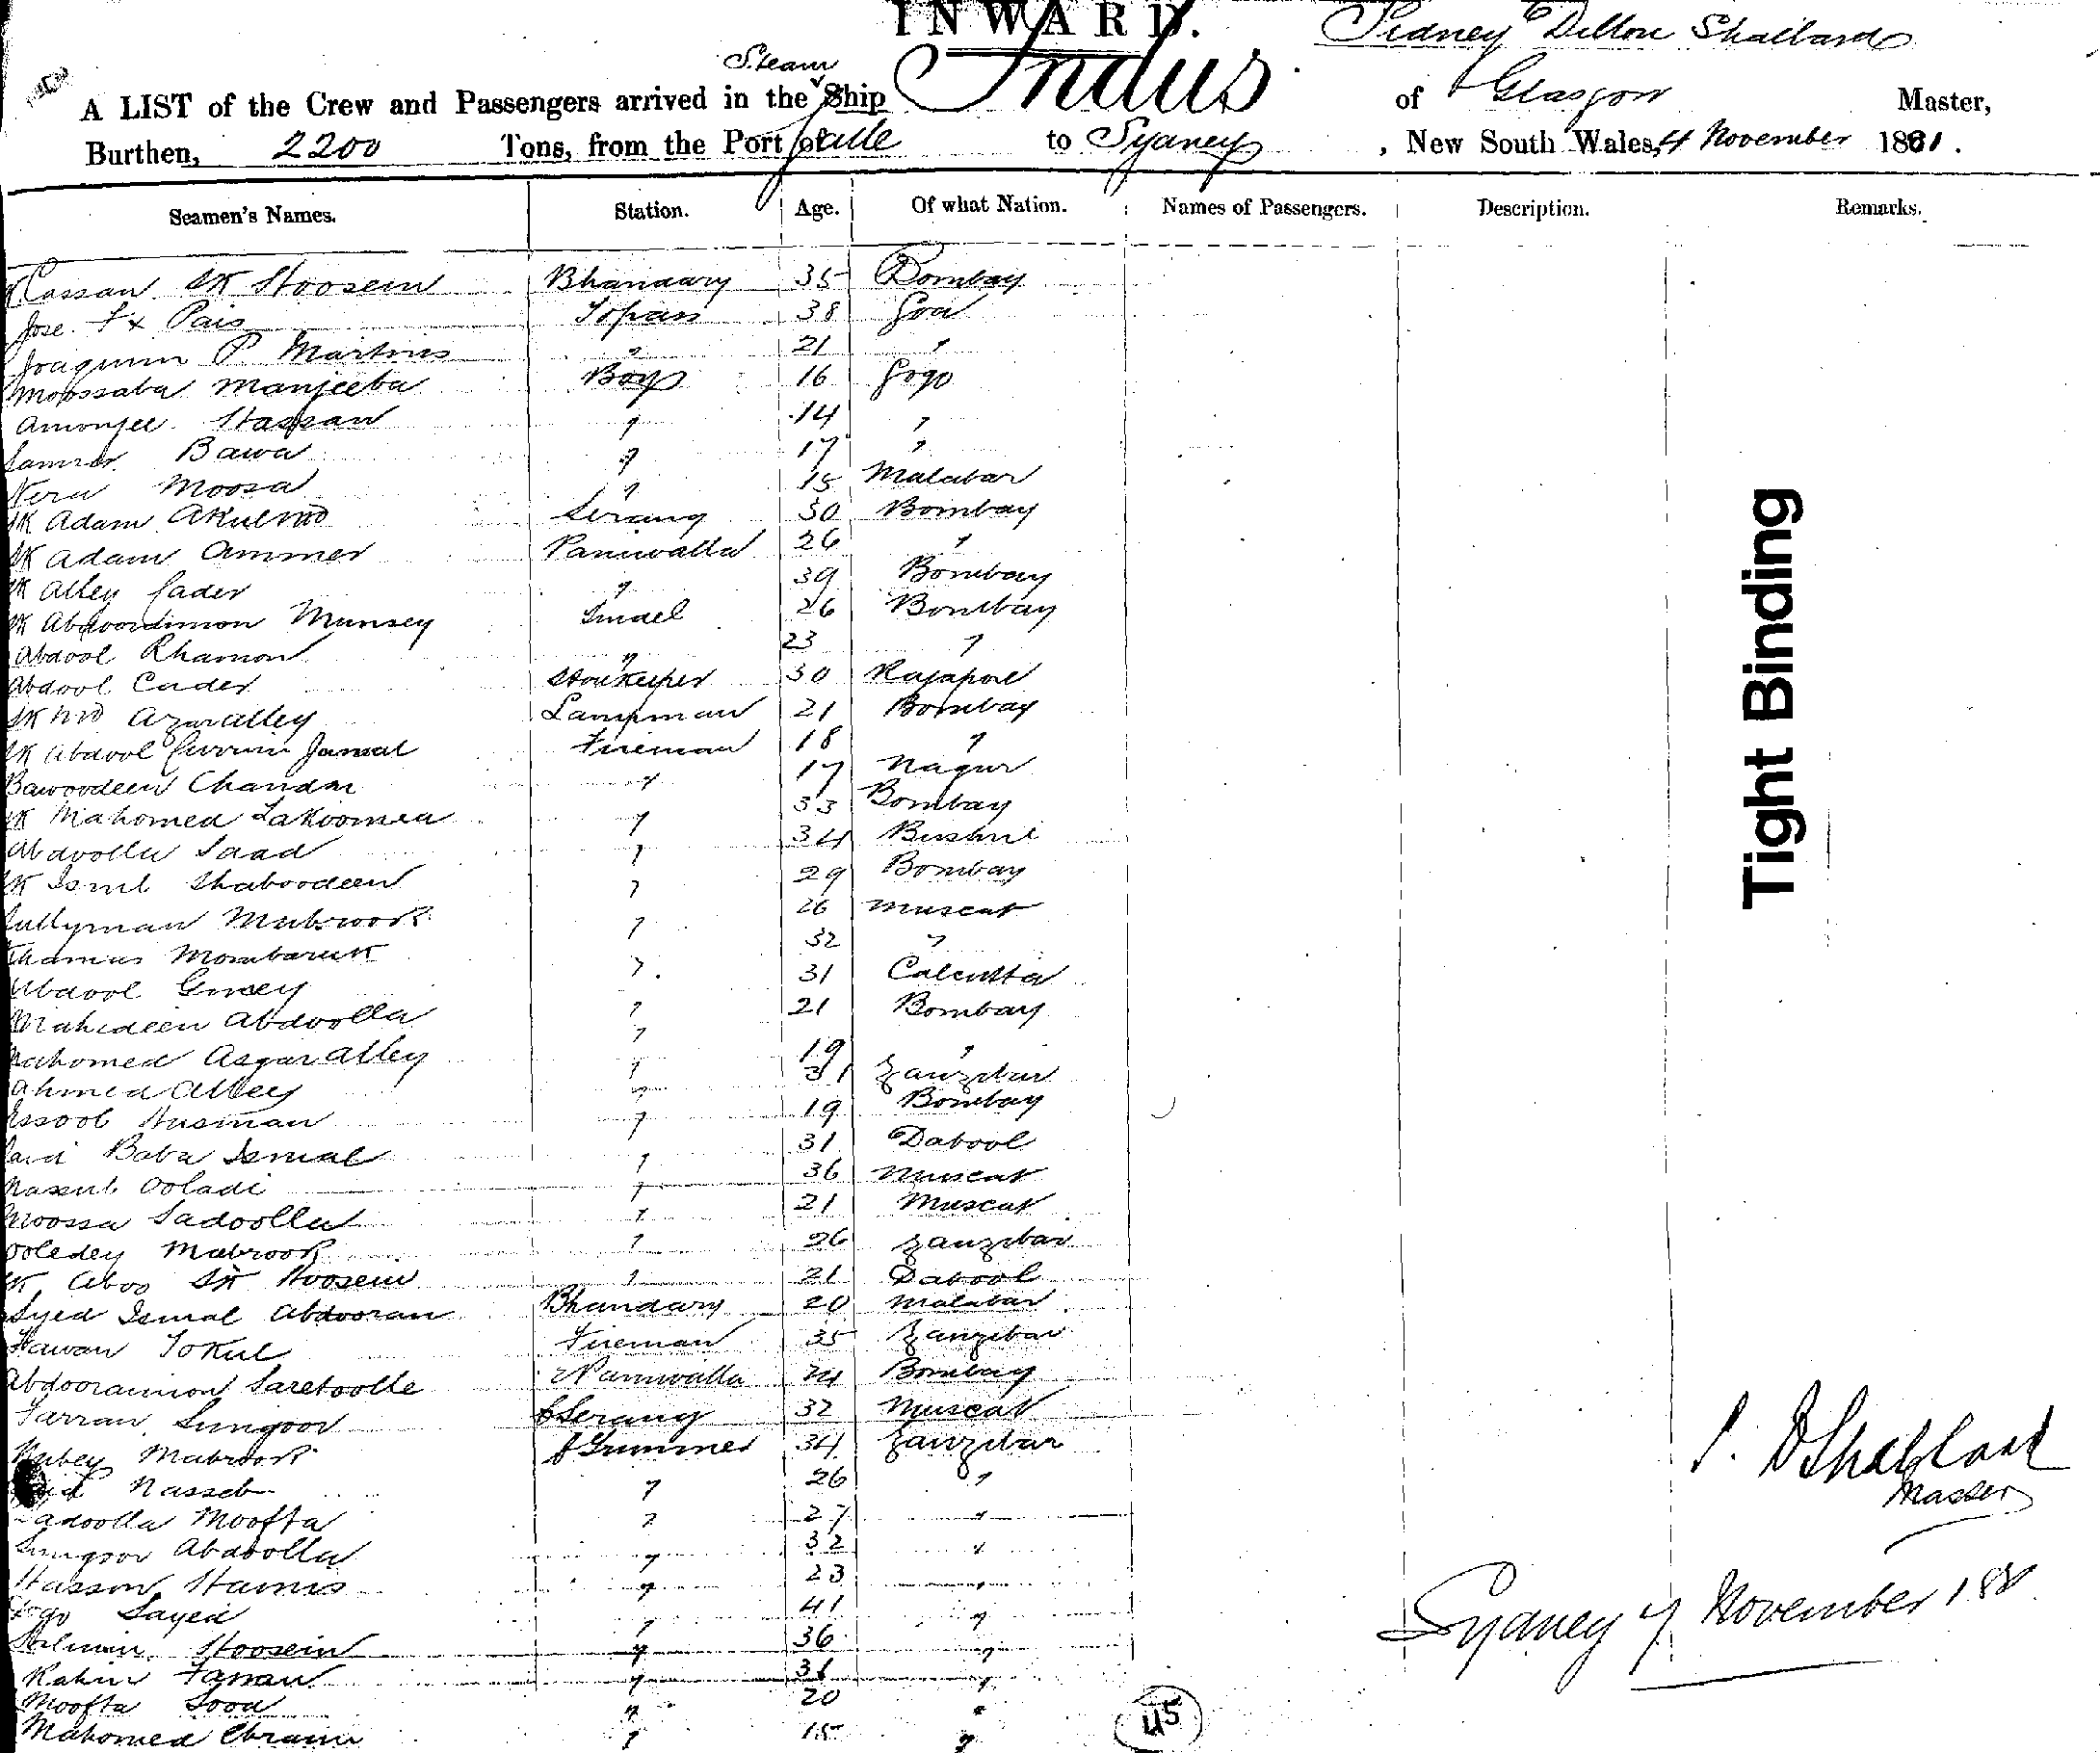 INWARD.
Sidney Dillon Shallard
Steam
A LIST of the Crew and Passengers arrived in the Ship Indus of Glasgow Master,
Burthen, 2200 Tons, from the Port of Galle to Sydney, New South Wales, 4 November 1881.
Seamen's Names. Station. Age. Of what Nation. Names of Passengers. Description. Remarks.
Cassan SK Hoosein Bhandary 35 Bombay
Jose Fx Pais Topass 38 Goa
Joaquim P. Martins " 21 "
Moossaba Manjeeba Boy 16 Gogo
Amonjee Hassan " 14 "
Bawa " 17 "
Moosa " 15 Malabar
SK Adam Serang 30 Bombay
SK Adam Ammer Paniwalla 26 "
SK Alley Cader " 39 Bombay
SK Abdoordimon Munsey Tindel 26 Bombay
Abdool Rhamon " 23 "
Abdool Cader Storekeeper 30 Rajapore
SK Md Azaralley Lampman 21 Bombay
SK Abdool Currim Jamal Fireman 18 "
Bawoodeen Chandm " 17 Nagur
SK Mahomed Lakoomea " 33 Bombay
Abdoolla Saad " 34 Bushire
SK Isml Shaboodeen " 29 Bombay
Sullyman Mubrook " 26 Muscat
Khamis Mombaruk " 32 "
Abdool Guney " 31 Calcutta
Mahedeen Abdoolla " 21 Bombay
Mahomed Asgar Alley " 19 "
Ahmed Alley " 31 Zanzibar
Essoob Husman " 19 Bombay
Said Baba Ismal " 31 Dabool
Nassub Ooladi " 36 Muscat
Moossa Sadoolla " 21 Muscat
Ooledey Mabrook " 26 Zanzibar
SK Aboo SK Hoosein " 21 Dabool
Syed Ismal Abdooran Bhandary 20 Malabar
Hawan Tokul Fireman 35 Zanzibar
Abdooraimon Saretoolle Paniwalla 24 Bombay
Farran Sungoor Serang 32 Muscat
Mabrook Trimmer 34 Zanzibar
Nasseb " 26 "
Sadoolla Moofta " 27 "
Sungoor Abdoolla " 32 "
Hasson Hamis " 23 "
Sayed " 41 "
Selmin Hoosein " 36 "
Rahm Faman " 31 "
Moofta Sood " 20 "
Mahomed Ebraim " 15 "
45
Tight Binding
S. D Shallard
Master
Sydney 4 November 188